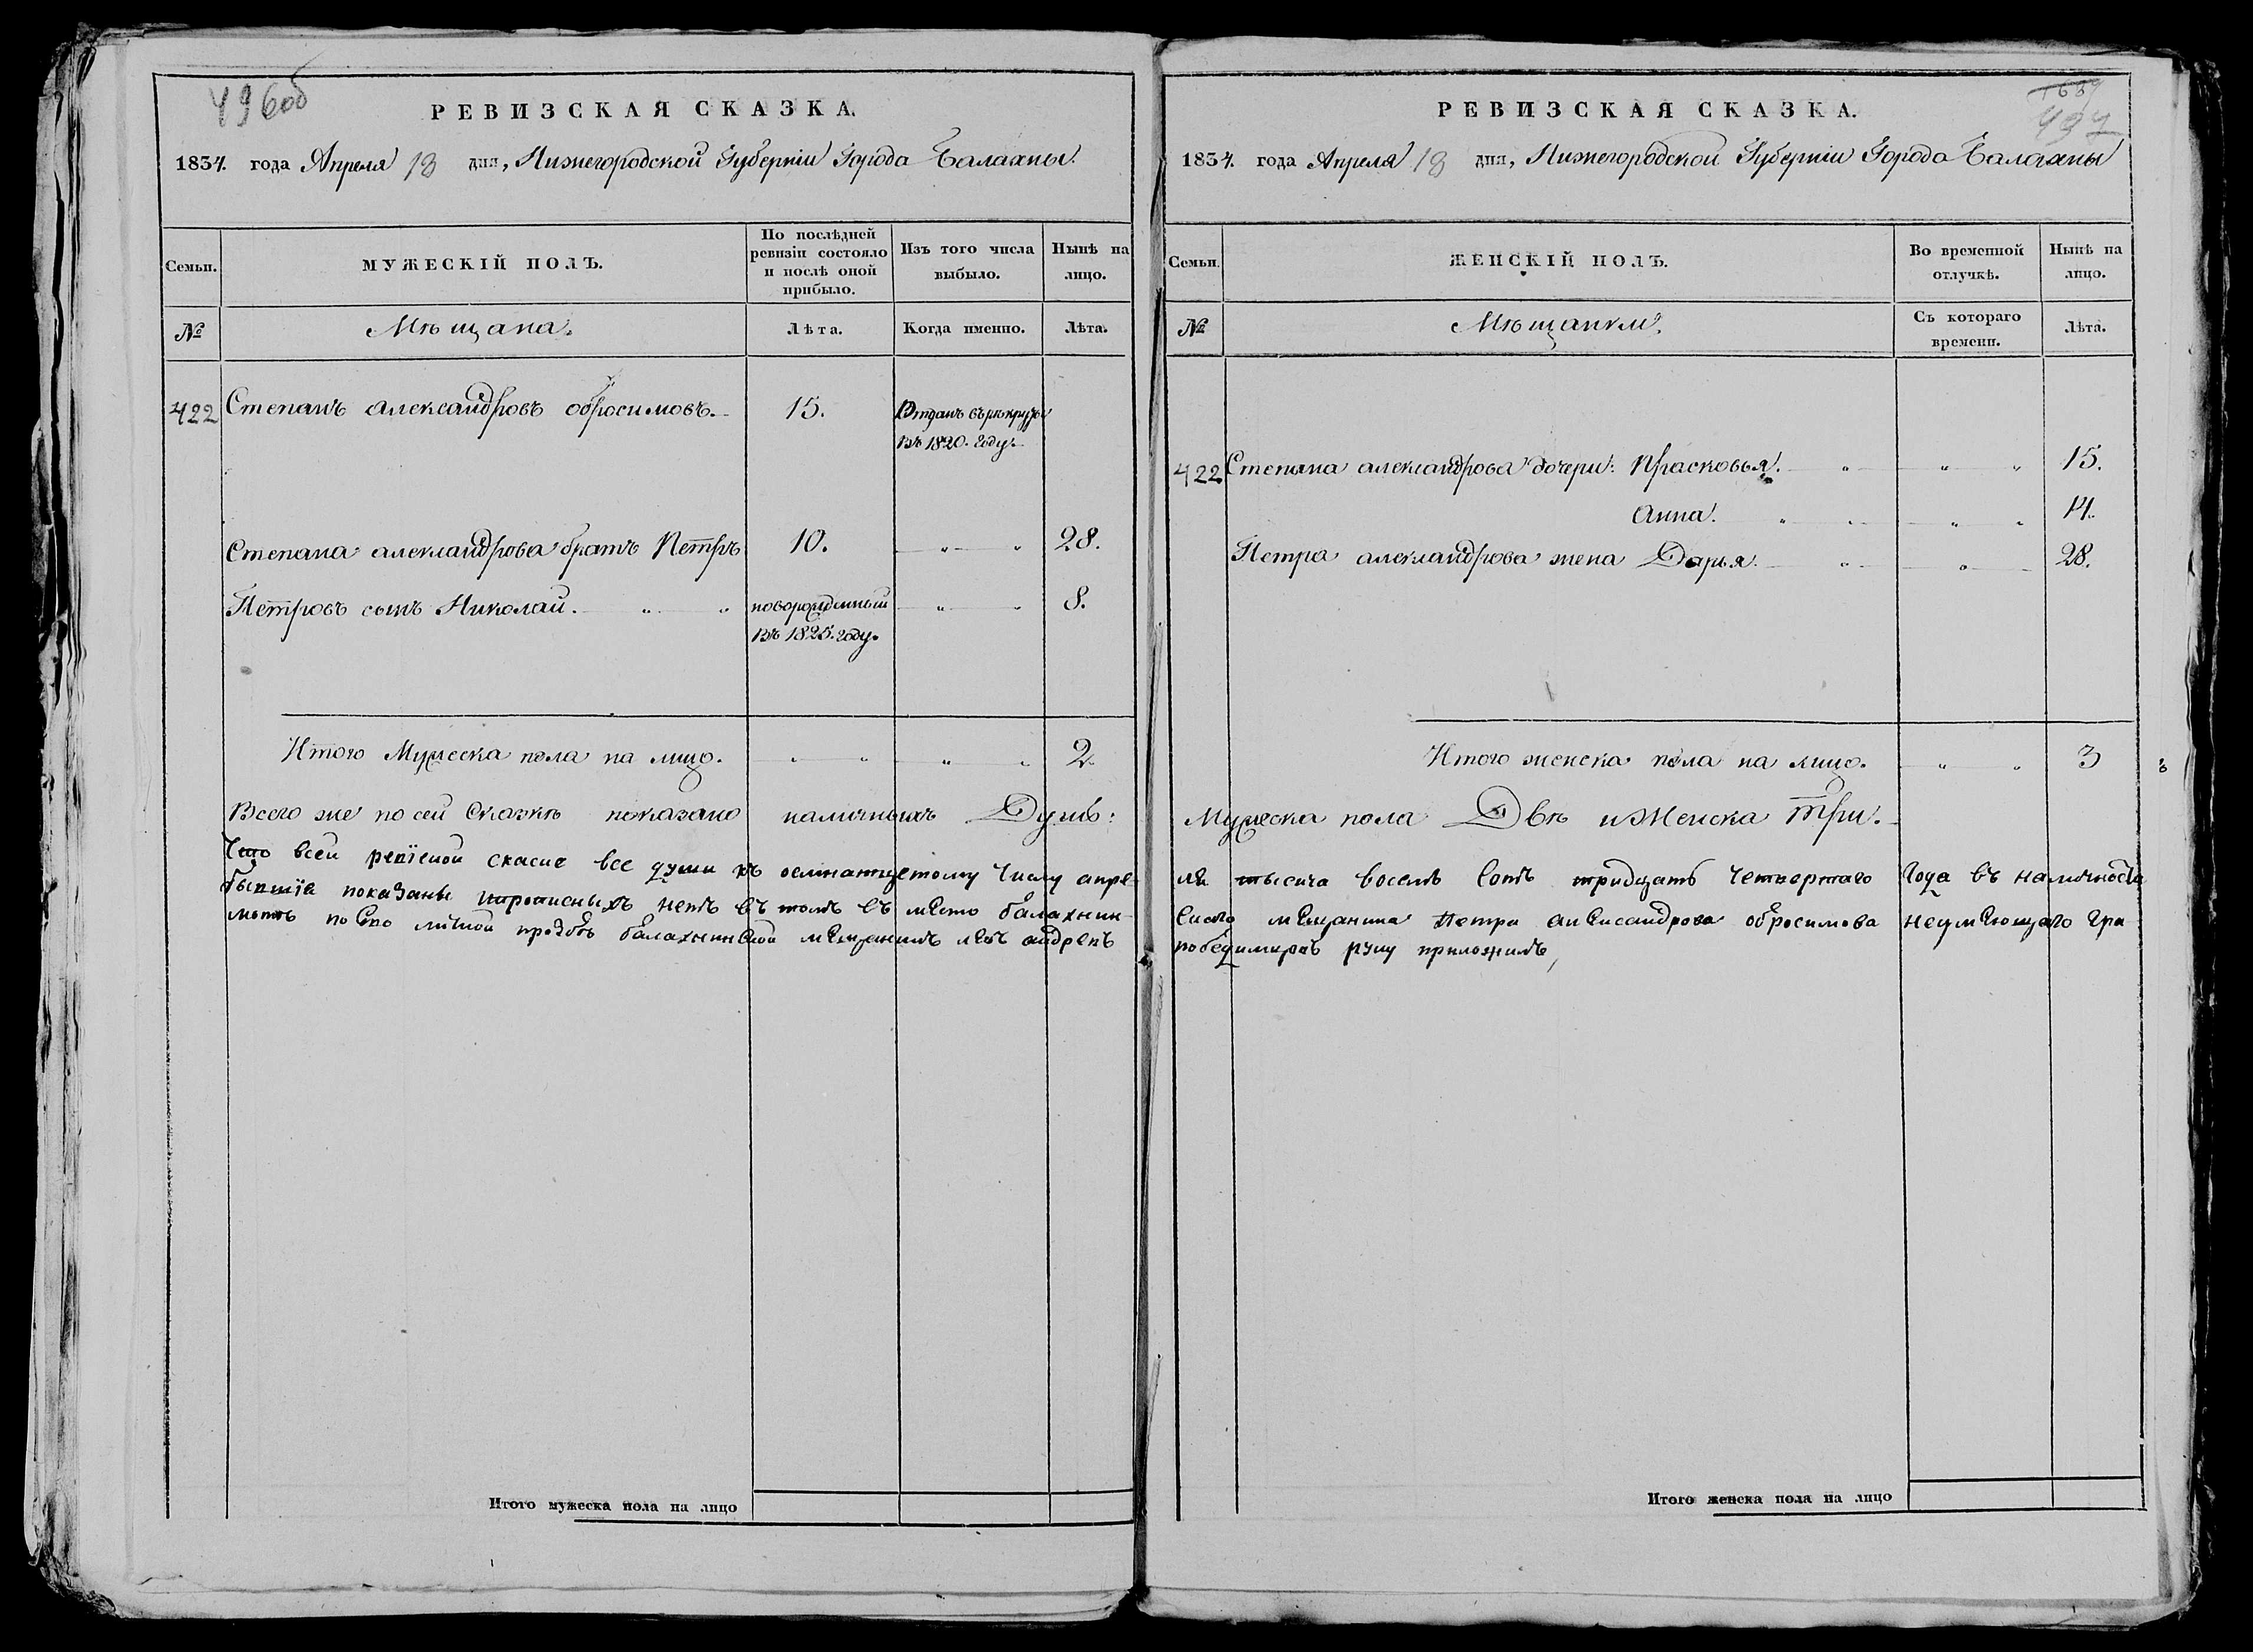 496об
РЕВИЗСКАЯ СКАЗКА.
1834. года Апреля 18 дня, Нижегородской Губерніи Города Балахны.
Семьи.
МУЖЕСКІЙ ПОЛЪ.
По послѣдней
ревизіи состояло
и послѣ оной
прибыло.
Изъ того числа
выбыло.
Нынѣ на
лицо.
№
Мѣщана.
Лѣта.
Когда именно.
Лѣта.
422
Степанъ александровъ обросимовъ.
15.
Отданъ въ рекруты
въ 1820. году.
Степана александрова братъ Петръ
10.
28.
Петровъ сынъ Николай.
новорожденный
въ 1825. году.
8.
Итого Мужеска пола на лицо.
2.
Всего же по сей Сказкѣ показано наличныхъ Душъ:
Что всей скаске все души къ осмнантцетому Числу апре
бывшіе показаны прописныхъ нетъ въ томъ въ место балахнин
мотъ по его личной прозбѣ балахнинской мещанинъ андреевъ
Итого мужеска пола на лицо
РЕВИЗСКАЯ СКАЗКА.
1659
497
1834. года Апреля 18 дня, Нижегородской Губерніи Города Балахны
Семьи.
ЖЕНСКІЙ ПОЛЪ.
Во временной
отлучкѣ.
Нынѣ на
лицо.
№
Мѣщанки.
Съ котораго
времени.
Лѣта.
422
Степана александрова дочери: Прасковья.
15.
Анна.
14.
Петра александрова жена Дарья.
28.
Итого женска пола на лицо.
3
Мужеска пола Двѣ и Женска Три.
ля тысеча восемъ сотъ тридцать четвертаго Года въ наличности
скаго мещанина Петра александрова обросимова неумеющаго гра
руку приложилъ,
Итого женска пола на лицо